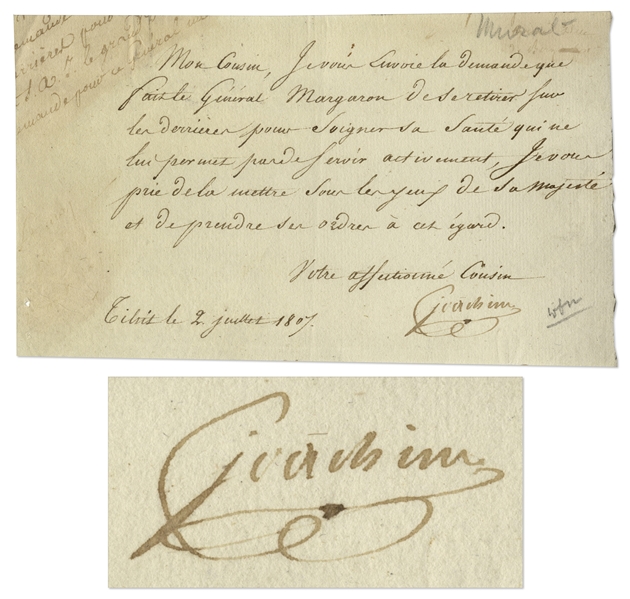 Murat
Mon Cousin, Je vous Envoie la demande que
fait le Général Margaron de se retirer sur
les derrières pour Soigner sa Santé qui ne
lui permet pas de Servir activement, Je vous
prie de la mettre sous les yeux de Sa Majesté
et de prendre ses ordres à cet égard.
Votre affectionné Cousin
Joachim
Tilsit le 2 juillet 1807.
Joachim